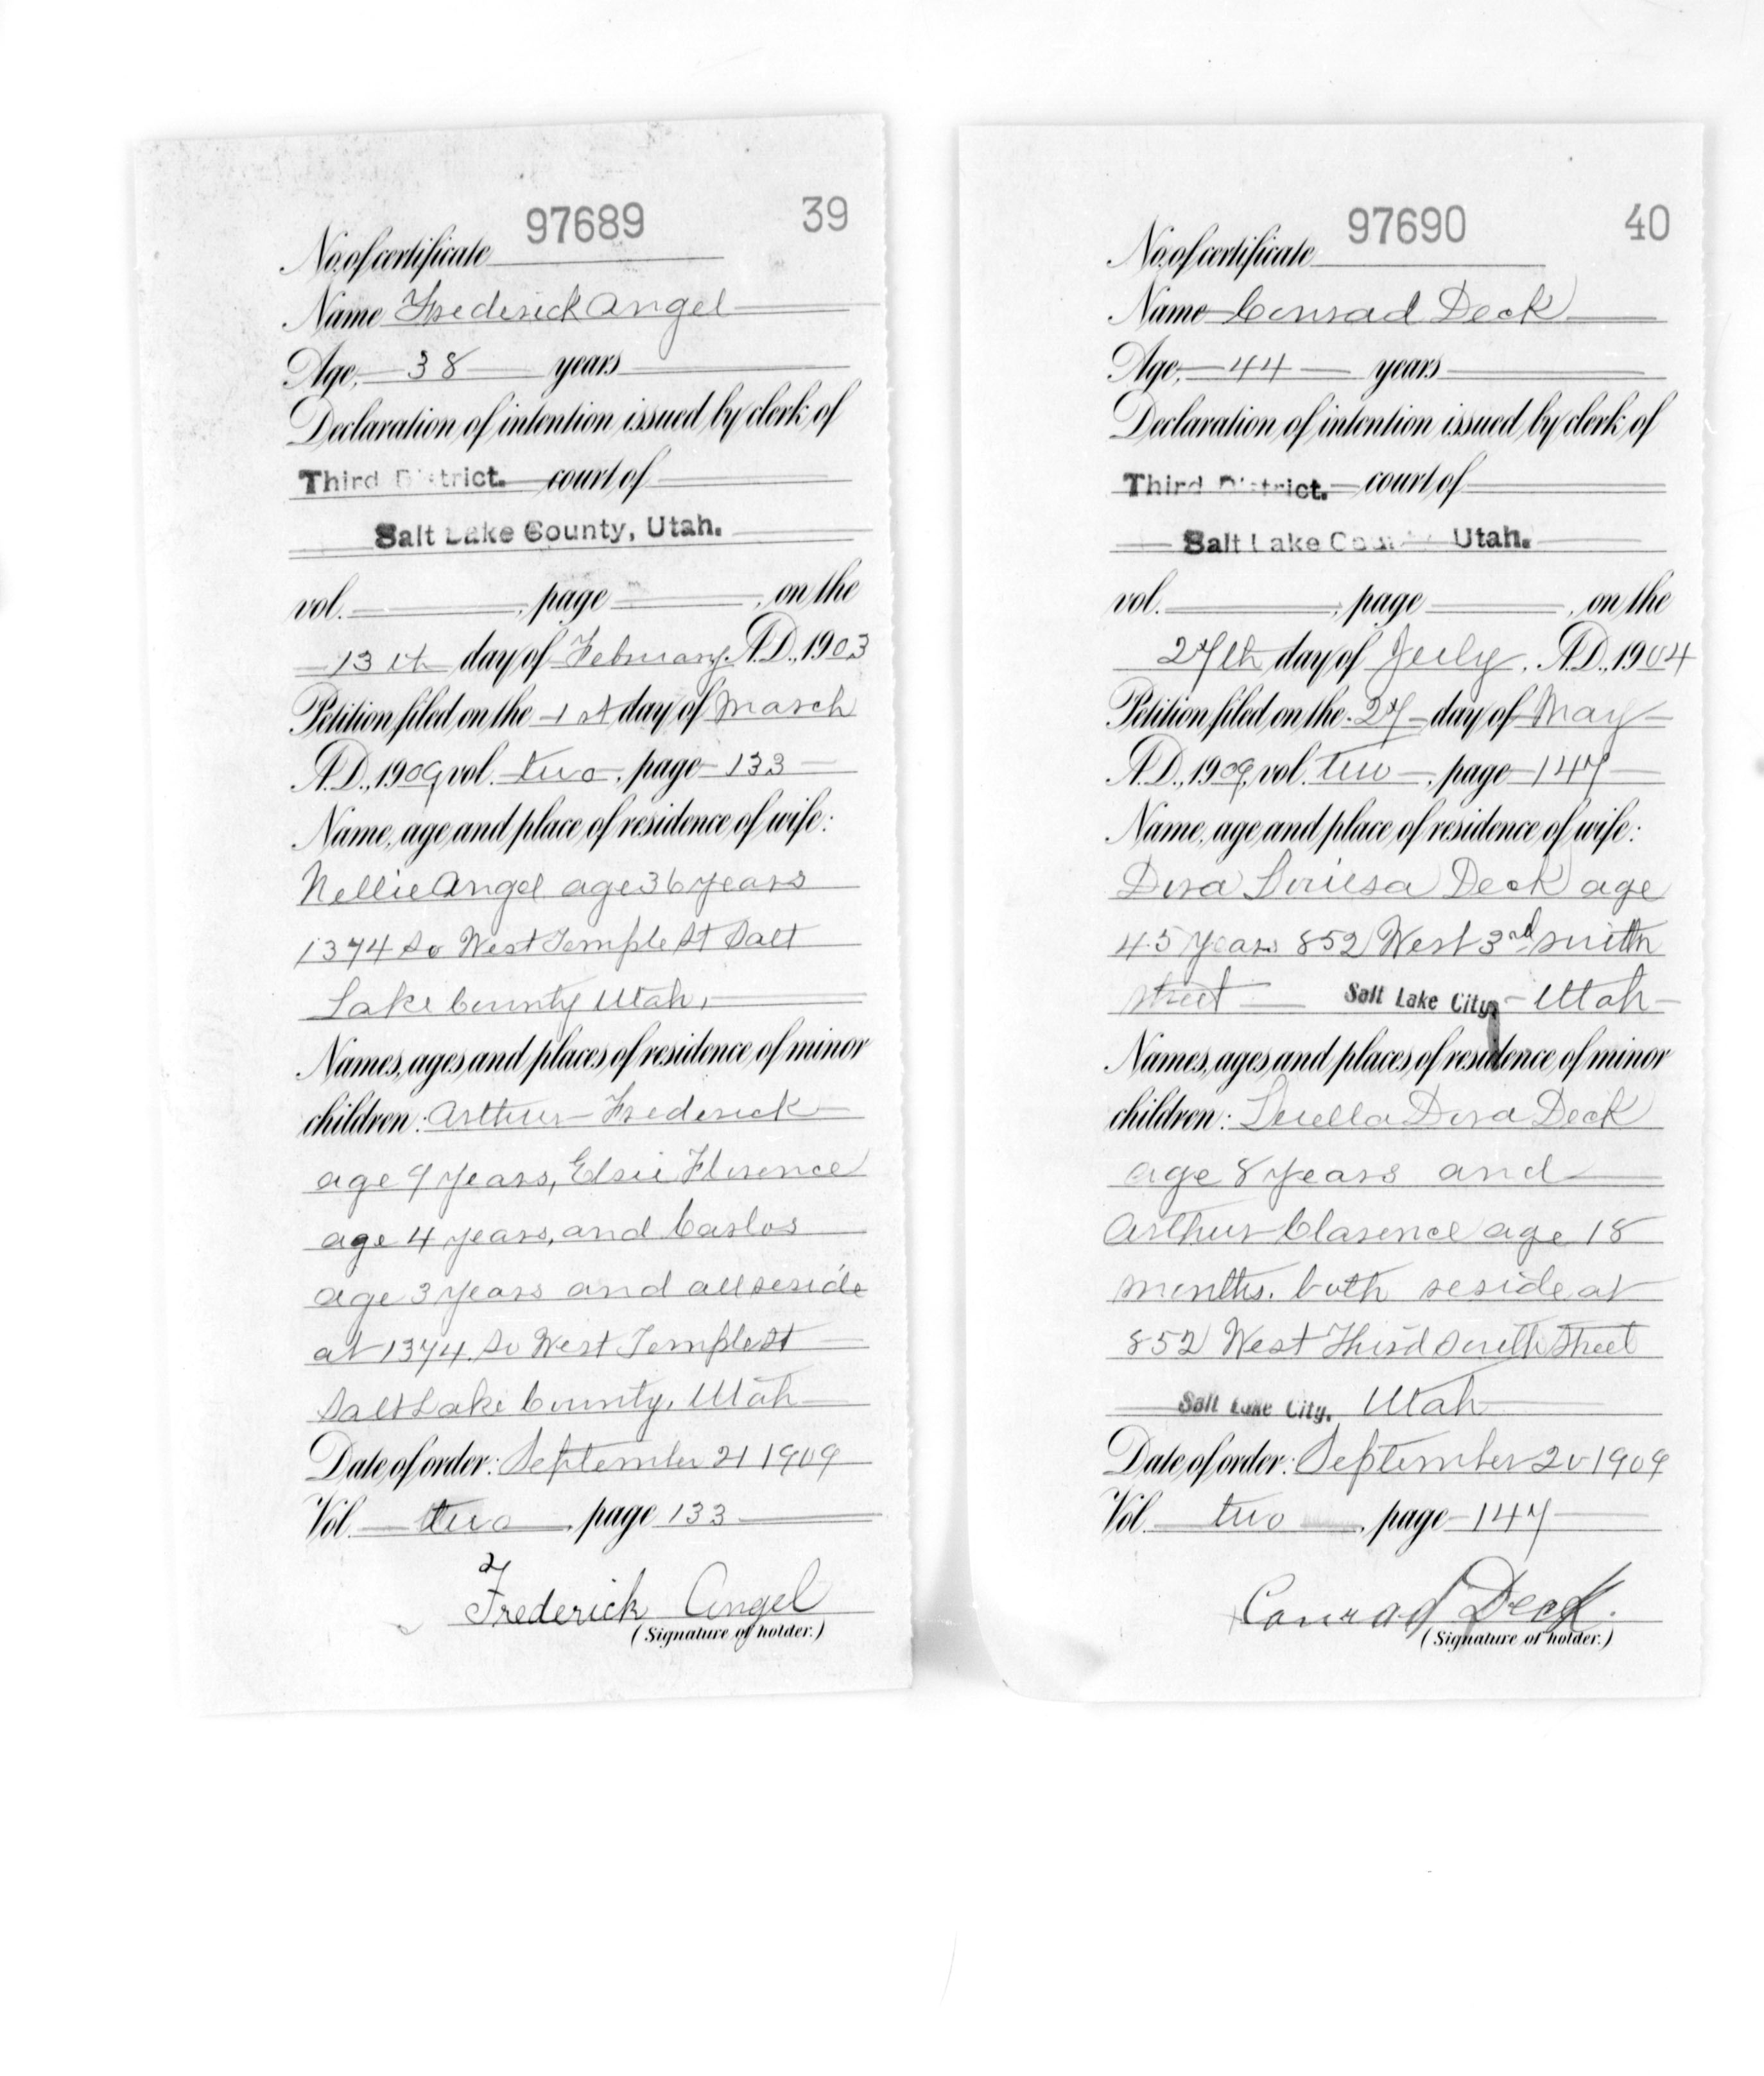 97689 39
No. of certificate
Name Frederick Angel
Age, 38 years
Declaration of intention issued by clerk of
Third District. court of
Salt Lake County, Utah.
vol. , page , on the
13th day of February. A.D., 1903
Petition filed on the 1st day of March
A.D., 1909, vol. two, page 133
Name, age and place of residence of wife:
Nellie Angel age 36 years
1374 So West Temple St Salt
Lake County Utah.
Names, ages and places of residence of minor
children: Arthur Frederick
age 9 years, Elsie Florence
age 4 years, and Carlos
age 3 years and all reside
at 1374 So West Temple St
Salt Lake County, Utah
Date of order: September 21 1909
Vol. two, page 133
Frederick Angel
(Signature of holder.)
97690 40
No. of certificate
Name Conrad Deck
Age, 44 years
Declaration of intention issued by clerk of
Third District. court of
Salt Lake County Utah.
vol. , page , on the
27th day of July, A.D., 1904
Petition filed on the 27 day of May
A.D., 1909, vol. two, page 147
Name, age and place of residence of wife:
Dora Louisa Deck age
45 years 852 West 3rd south
street Salt Lake City, Utah
Names, ages and places of residence of minor
children: Luella Dora Deck
age 8 years and
Arthur Clarence age 18
months. both reside at
852 West Third South Street
Salt Lake City, Utah
Date of order: September 20 1909
Vol. two, page 147
Conrad Deck.
(Signature of holder.)